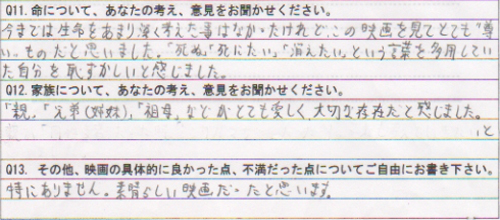 Q11. 命について、あなたの考え、意見をお聞かせください。
今までは生命をあまり深く考えた事はなかったけれど、この映画を見てとても"尊
い"ものだと思いました。「死ぬ」「死にたい」「消えたい」という言葉を多用してい
た自分を恥ずかしいと感じました。
Q12. 家族について、あなたの考え、意見をお聞かせください。
「親」「兄弟(姉妹)」「祖母」などがとても愛しく、大切な存在だと感じました。
いと
Q13. その他、映画の具体的に良かった点、不満だった点についてご自由にお書き下さい。
特にありません。素晴らしい映画だったと思います。